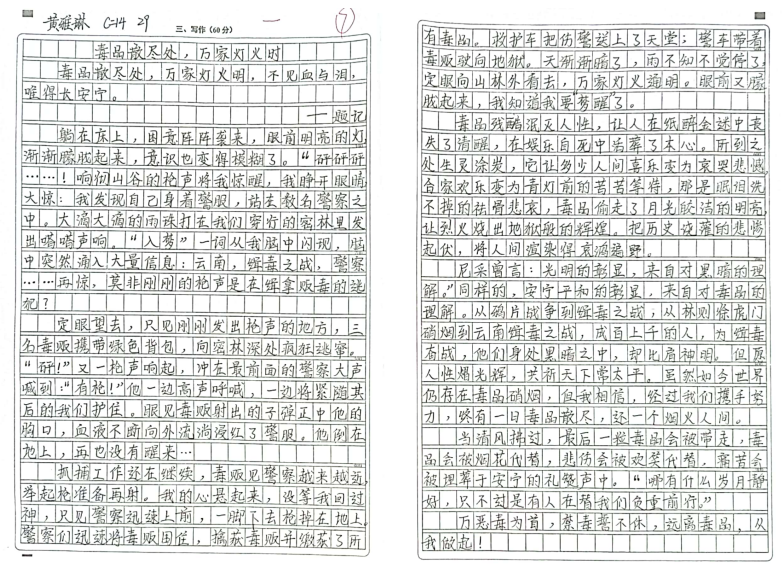 黄雅琳 C-14 29
一
7
三、写作(60分)
毒品散尽处,万家灯火时
毒品散尽处,万家灯火明,不见血与泪,
唯得长安宁。
——题记
躺在床上,困意阵阵袭来,眼前明亮的灯
渐渐朦胧起来,意识也变得模糊了。“砰砰砰
……!响彻山谷的枪声将我惊醒,我睁开眼睛
大惊:我发现自己身着警服,站在数名警察之
中。大滴大滴的雨珠打在我们穿行的密林里发
出嗒嗒声响。“入梦”一词从我脑中闪现,脑
中突然涌入大量信息:云南,缉毒之战,警察
……再惊,莫非刚刚的枪声是在缉拿贩毒的逃
犯?
定眼望去,只见刚刚发出枪声的地方,三
名毒贩携带绿色背包,向密林深处疯狂逃窜。
“砰!”又一枪声响起,冲在最前面的警察大声
喊到:“有枪!”他一边高声呼喊,一边将紧随其
后的我们护住。眼见毒贩射出的子弹正中他的
胸口,血液不断向外流淌浸红了警服。他倒在
地上,再也没有醒来…
抓捕工作还在继续,毒贩见警察越来越近,
举起枪准备再射。我的心悬起来,没等我回过
神,只见警察迅速上前,一脚下去枪掉在地上。
警察们迅速将毒贩围住,擒获毒贩并缴获了所
有毒品。救护车把伤警送上了天堂;警车带着
毒贩驶向地狱。天渐渐晴了,雨不知不觉停了,
定眼向山林外看去,万家灯火通明。眼前又朦
胧起来,我知道我要“梦醒”了。
毒品残酷泯灭人性,让人在纸醉金迷中丧
失了清醒,在娱乐自死中沾葬了本心。所到之
处生灵涂炭,它让多少人间喜乐变为哀哭悲戚,
合家欢乐变为青灯前的苦苦等待,那是眼泪洗
不掉的怯骨悲哀,毒品偷走了月光皎洁的明亮,
让烈火烧出地狱般的辉煌。把历史疮落的悲惨
起伏,将人间渲染得哀鸿遍野。
尼采曾言:光明的彰显,来自对黑暗的理
解。”同样的,安宁平和的彰显,来自对毒品的
理解。从鸦片战争到缉毒之战,从林则徐虎门
硝烟到云南缉毒之战,成百上千的人,为缉毒
而战,他们身处黑暗之中,却比肩神明。但愿
人性熠光辉,共祈天下常太平。虽然如今世界
仍存在毒品硝烟,但我相信,经过我们携手努
力,终有一日毒品散尽,还一个烟火人间。
当清风拂过,最后一缕毒品会被带走,毒
品会被烟花代替,悲伤会被欢笑代替,痛苦会
被埋葬于安宁的礼炮声中。“哪有什么岁月静
好,只不过是有人在替我们负重前行。”
万恶毒为首,禁毒誓不休,远离毒品,从
我做起!